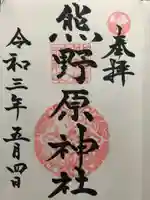 奉拝
熊野原神社
令和三年五月四日